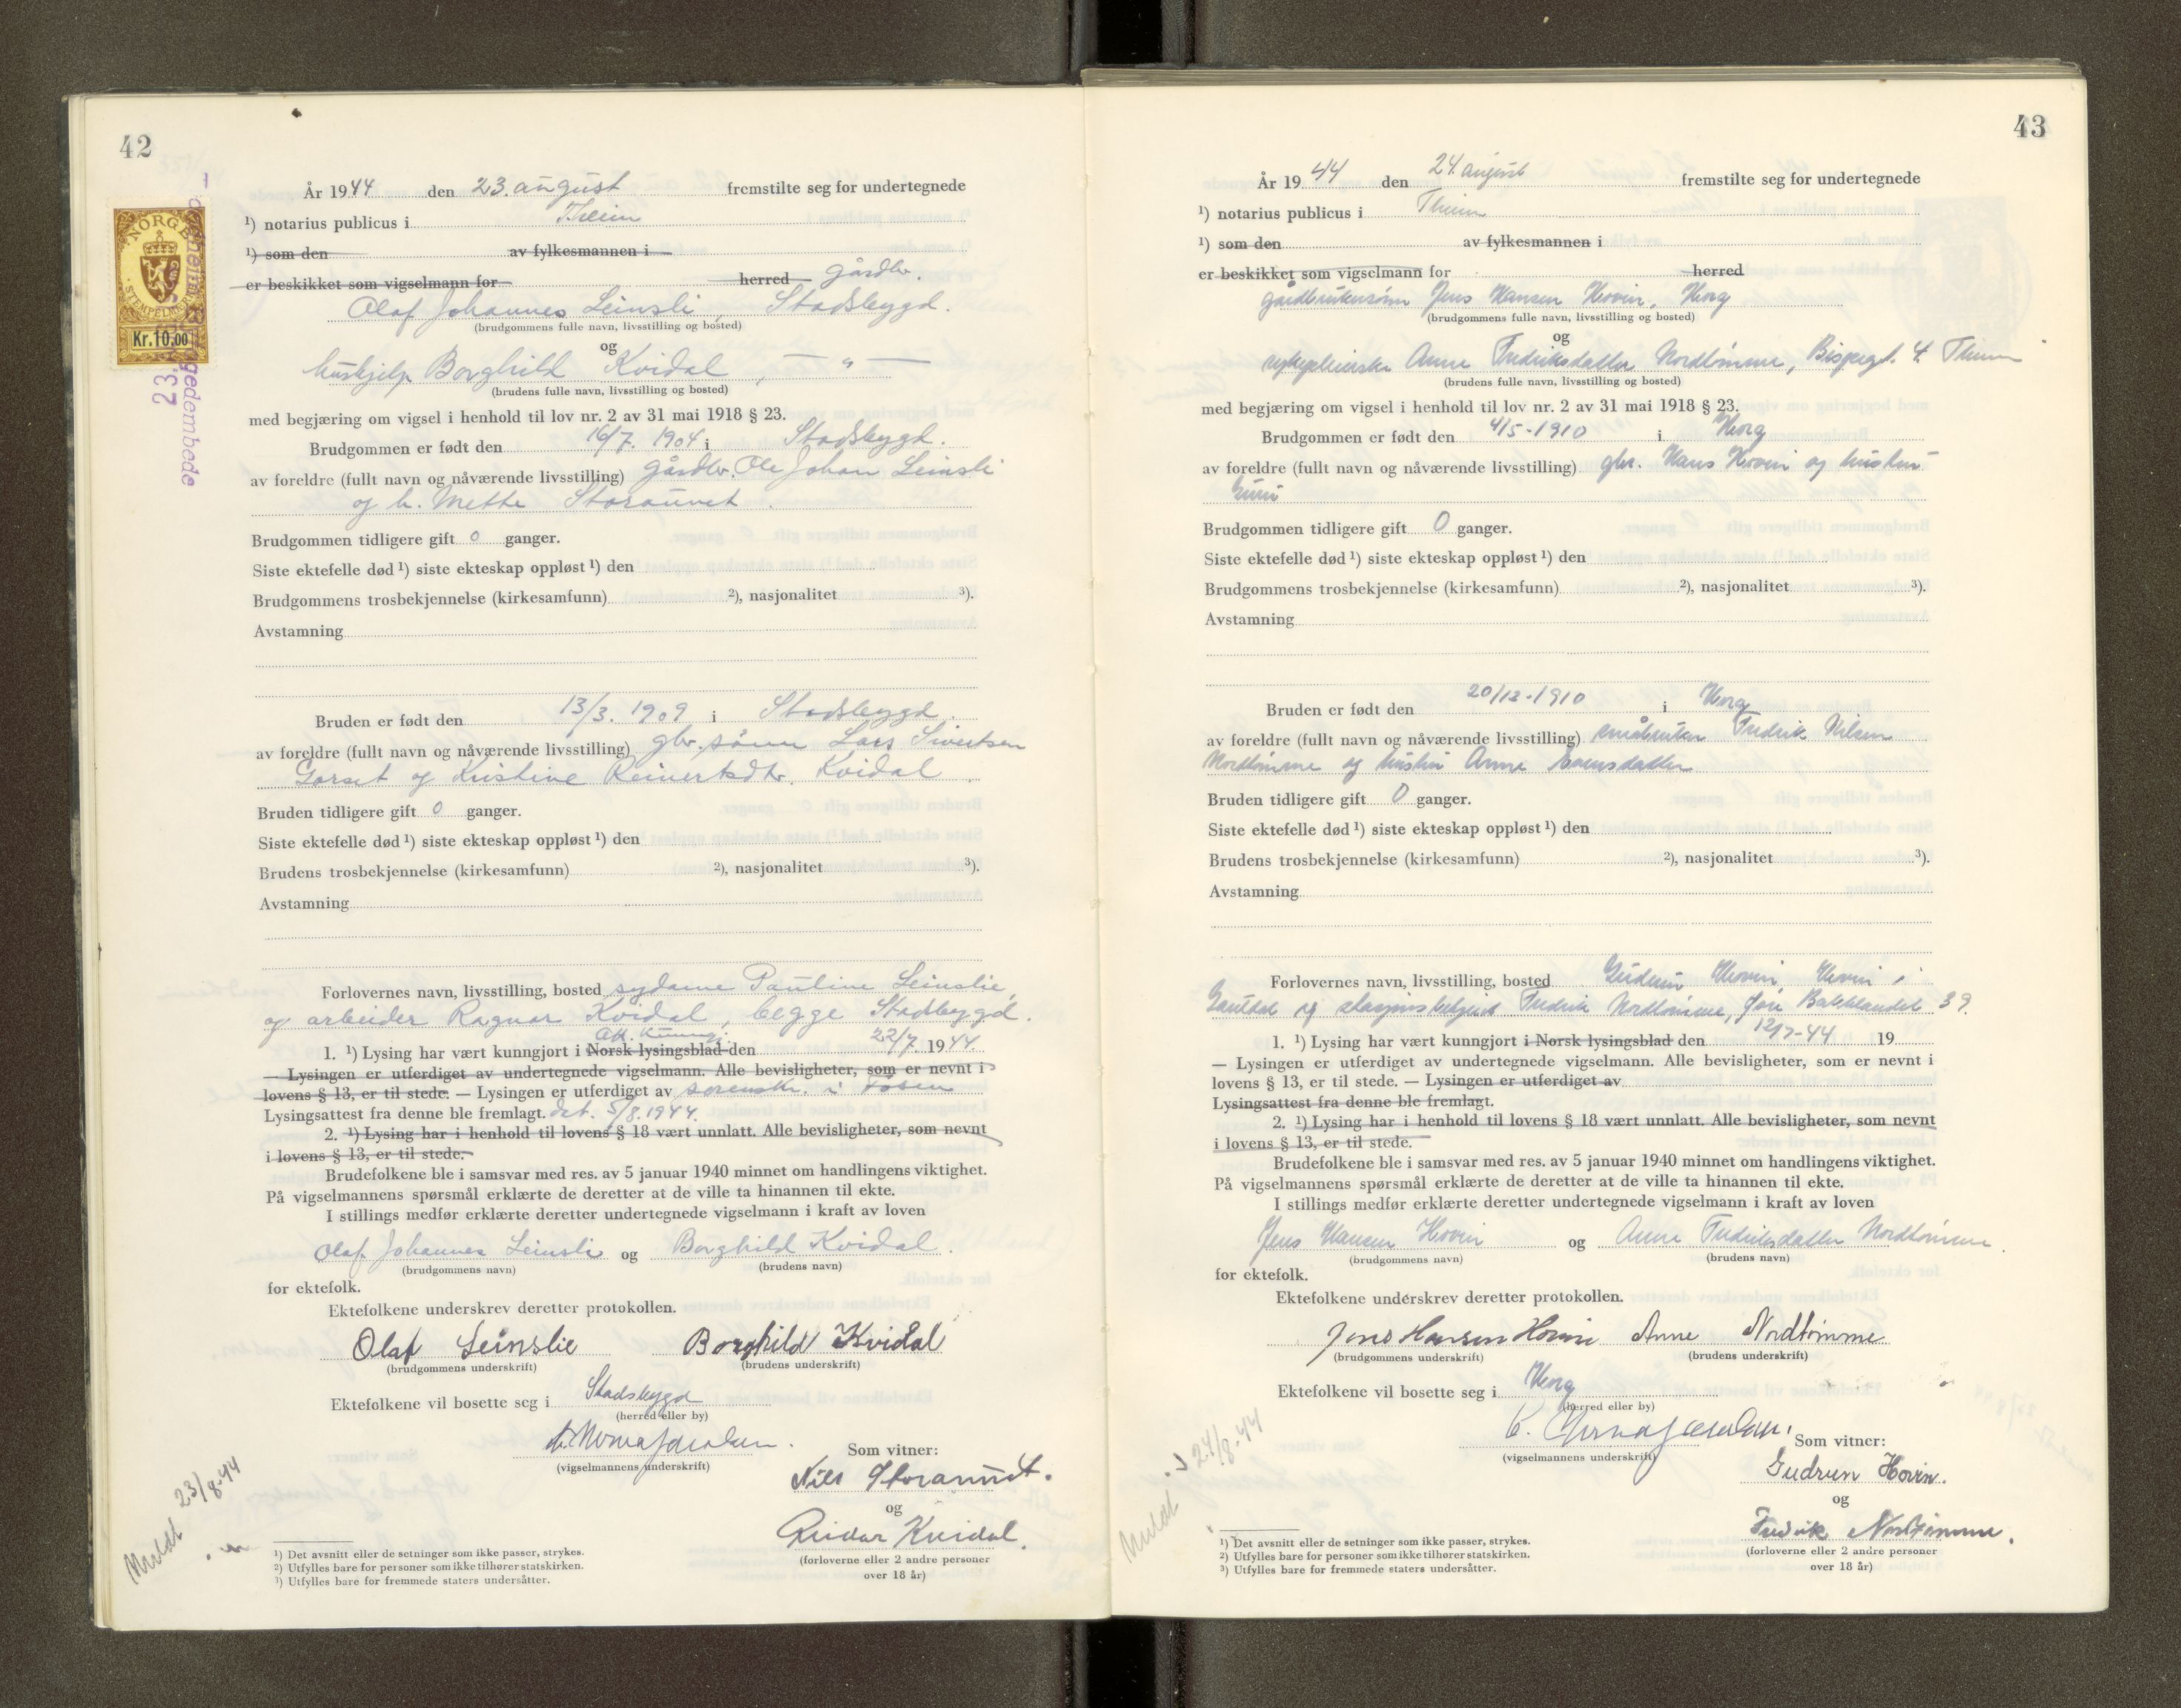 42
År 1944 den 23. august fremstilte seg for undertegnede
¹) notarius publicus i Trheim
¹) som den av fylkesmannen i
er beskikket som vigselmann for herred gårdbr.
Olaf Johannes Leinsli, Stadsbygd.
(brudgommens fulle navn, livsstilling og bosted)
og
hushjelp Borghild Kvidal, — " —
(brudens fulle navn, livsstilling og bosted)
med begjæring om vigsel i henhold til lov nr. 2 av 31 mai 1918 § 23.
Brudgommen er født den 16/7. 1904 i Stadsbygd.
av foreldre (fullt navn og nåværende livsstilling) gårdbr. Ole Johan Leinsli
og h. Mette Storaunet.
Brudgommen tidligere gift 0 ganger.
Siste ektefelle død ¹) siste ekteskap oppløst ¹) den
Brudgommens trosbekjennelse (kirkesamfunn) ²), nasjonalitet ³).
Avstamning
Bruden er født den 13/3. 1909 i Stadsbygd.
av foreldre (fullt navn og nåværende livsstilling) gbr. sønn Lars Sivertsen
Gorset og Kristine Reinertsdtr. Kvidal
Bruden tidligere gift 0 ganger.
Siste ektefelle død ¹) siste ekteskap oppløst ¹) den
Brudens trosbekjennelse (kirkesamfunn) ²), nasjonalitet ³).
Avstamning
Forlovernes navn, livsstilling, bosted sydame Pauline Leinslie,
og arbeider Ragnar Kvidal, begge Stadsbygd.
1. ¹) Lysing har vært kunngjort i Norsk lysingsblad den 22/7. 1944.
— Lysingen er utferdiget av undertegnede vigselmann. Alle bevisligheter, som er nevnt i
lovens § 13, er til stede. — Lysingen er utferdiget av sorenskr. i Fosen
Lysingsattest fra denne ble fremlagt. dat. 5/8. 1944.
2. ¹) Lysing har i henhold til lovens § 18 vært unnlatt. Alle bevisligheter, som nevnt
i lovens § 13, er til stede.
Brudefolkene ble i samsvar med res. av 5 januar 1940 minnet om handlingens viktighet.
På vigselmannens spørsmål erklærte de deretter at de ville ta hinannen til ekte.
I stillings medfør erklærte deretter undertegnede vigselmann i kraft av loven
Olaf Johannes Leinsli og Borghild Kvidal.
(brudgommens navn) (brudens navn)
for ektefolk.
Ektefolkene underskrev deretter protokollen.
Olaf Leinslie Borghild Kvidal
(brudgommens underskrift) (brudens underskrift)
Ektefolkene vil bosette seg i Stadsbygd
(herred eller by)
(vigselmannens underskrift)
Som vitner:
Nils Storaunet.
og
Reidar Kvidal.
(forloverne eller 2 andre personer
over 18 år)
Meldt 23/8-44
¹) Det avsnitt eller de setninger som ikke passer, strykes.
²) Utfylles bare for personer som ikke tilhører statskirken.
³) Utfylles bare for fremmede staters undersåtter.
NORGE
STEMPELMERKE
Kr. 10.00
43
År 1944 den 24. august fremstilte seg for undertegnede
¹) notarius publicus i Theim
¹) som den av fylkesmannen i
er beskikket som vigselmann for herred
gårdbrukersønn Jens Hansen Hovin, Horg
(brudgommens fulle navn, livsstilling og bosted)
og
sykepleierske Anne Fredriksdatter Nordtømme, Bispegt. 4 Theim
(brudens fulle navn, livsstilling og bosted)
med begjæring om vigsel i henhold til lov nr. 2 av 31 mai 1918 § 23.
Brudgommen er født den 4/5-1910 i Horg
av foreldre (fullt navn og nåværende livsstilling) gbr. Hans Hovin og hustru
Guri
Brudgommen tidligere gift 0 ganger.
Siste ektefelle død ¹) siste ekteskap oppløst ¹) den
Brudgommens trosbekjennelse (kirkesamfunn) ²), nasjonalitet ³).
Avstamning
Bruden er født den 20/12-1910 i Horg
av foreldre (fullt navn og nåværende livsstilling) småbruker Fredrik Nilsen
Nordtømme og hustru Anne Evensdatter
Bruden tidligere gift 0 ganger.
Siste ektefelle død ¹) siste ekteskap oppløst ¹) den
Brudens trosbekjennelse (kirkesamfunn) ²), nasjonalitet ³).
Avstamning
Forlovernes navn, livsstilling, bosted Gudrun Hovin, Hovin i
Gauldal og stasjonsbetjent Fredrik Nordtømme, Øvre Bakklandet 39.
1. ¹) Lysing har vært kunngjort i Norsk lysingsblad den 12/7-44 19
— Lysingen er utferdiget av undertegnede vigselmann. Alle bevisligheter, som er nevnt i
lovens § 13, er til stede. — Lysingen er utferdiget av
Lysingsattest fra denne ble fremlagt.
2. ¹) Lysing har i henhold til lovens § 18 vært unnlatt. Alle bevisligheter, som nevnt
i lovens § 13, er til stede.
Brudefolkene ble i samsvar med res. av 5 januar 1940 minnet om handlingens viktighet.
På vigselmannens spørsmål erklærte de deretter at de ville ta hinannen til ekte.
I stillings medfør erklærte deretter undertegnede vigselmann i kraft av loven
Jens Hansen Hovin og Anne Fredriksdatter Nordtømme.
(brudgommens navn) (brudens navn)
for ektefolk.
Ektefolkene underskrev deretter protokollen.
Jens Hansen Hovin Anne Nordtømme
(brudgommens underskrift) (brudens underskrift)
Ektefolkene vil bosette seg i Horg
(herred eller by)
(vigselmannens underskrift)
Som vitner:
Gudrun Hovin.
og
Fredrik Nordtømme.
(forloverne eller 2 andre personer
over 18 år)
Meldt 24/8-44
¹) Det avsnitt eller de setninger som ikke passer, strykes.
²) Utfylles bare for personer som ikke tilhører statskirken.
³) Utfylles bare for fremmede staters undersåtter.